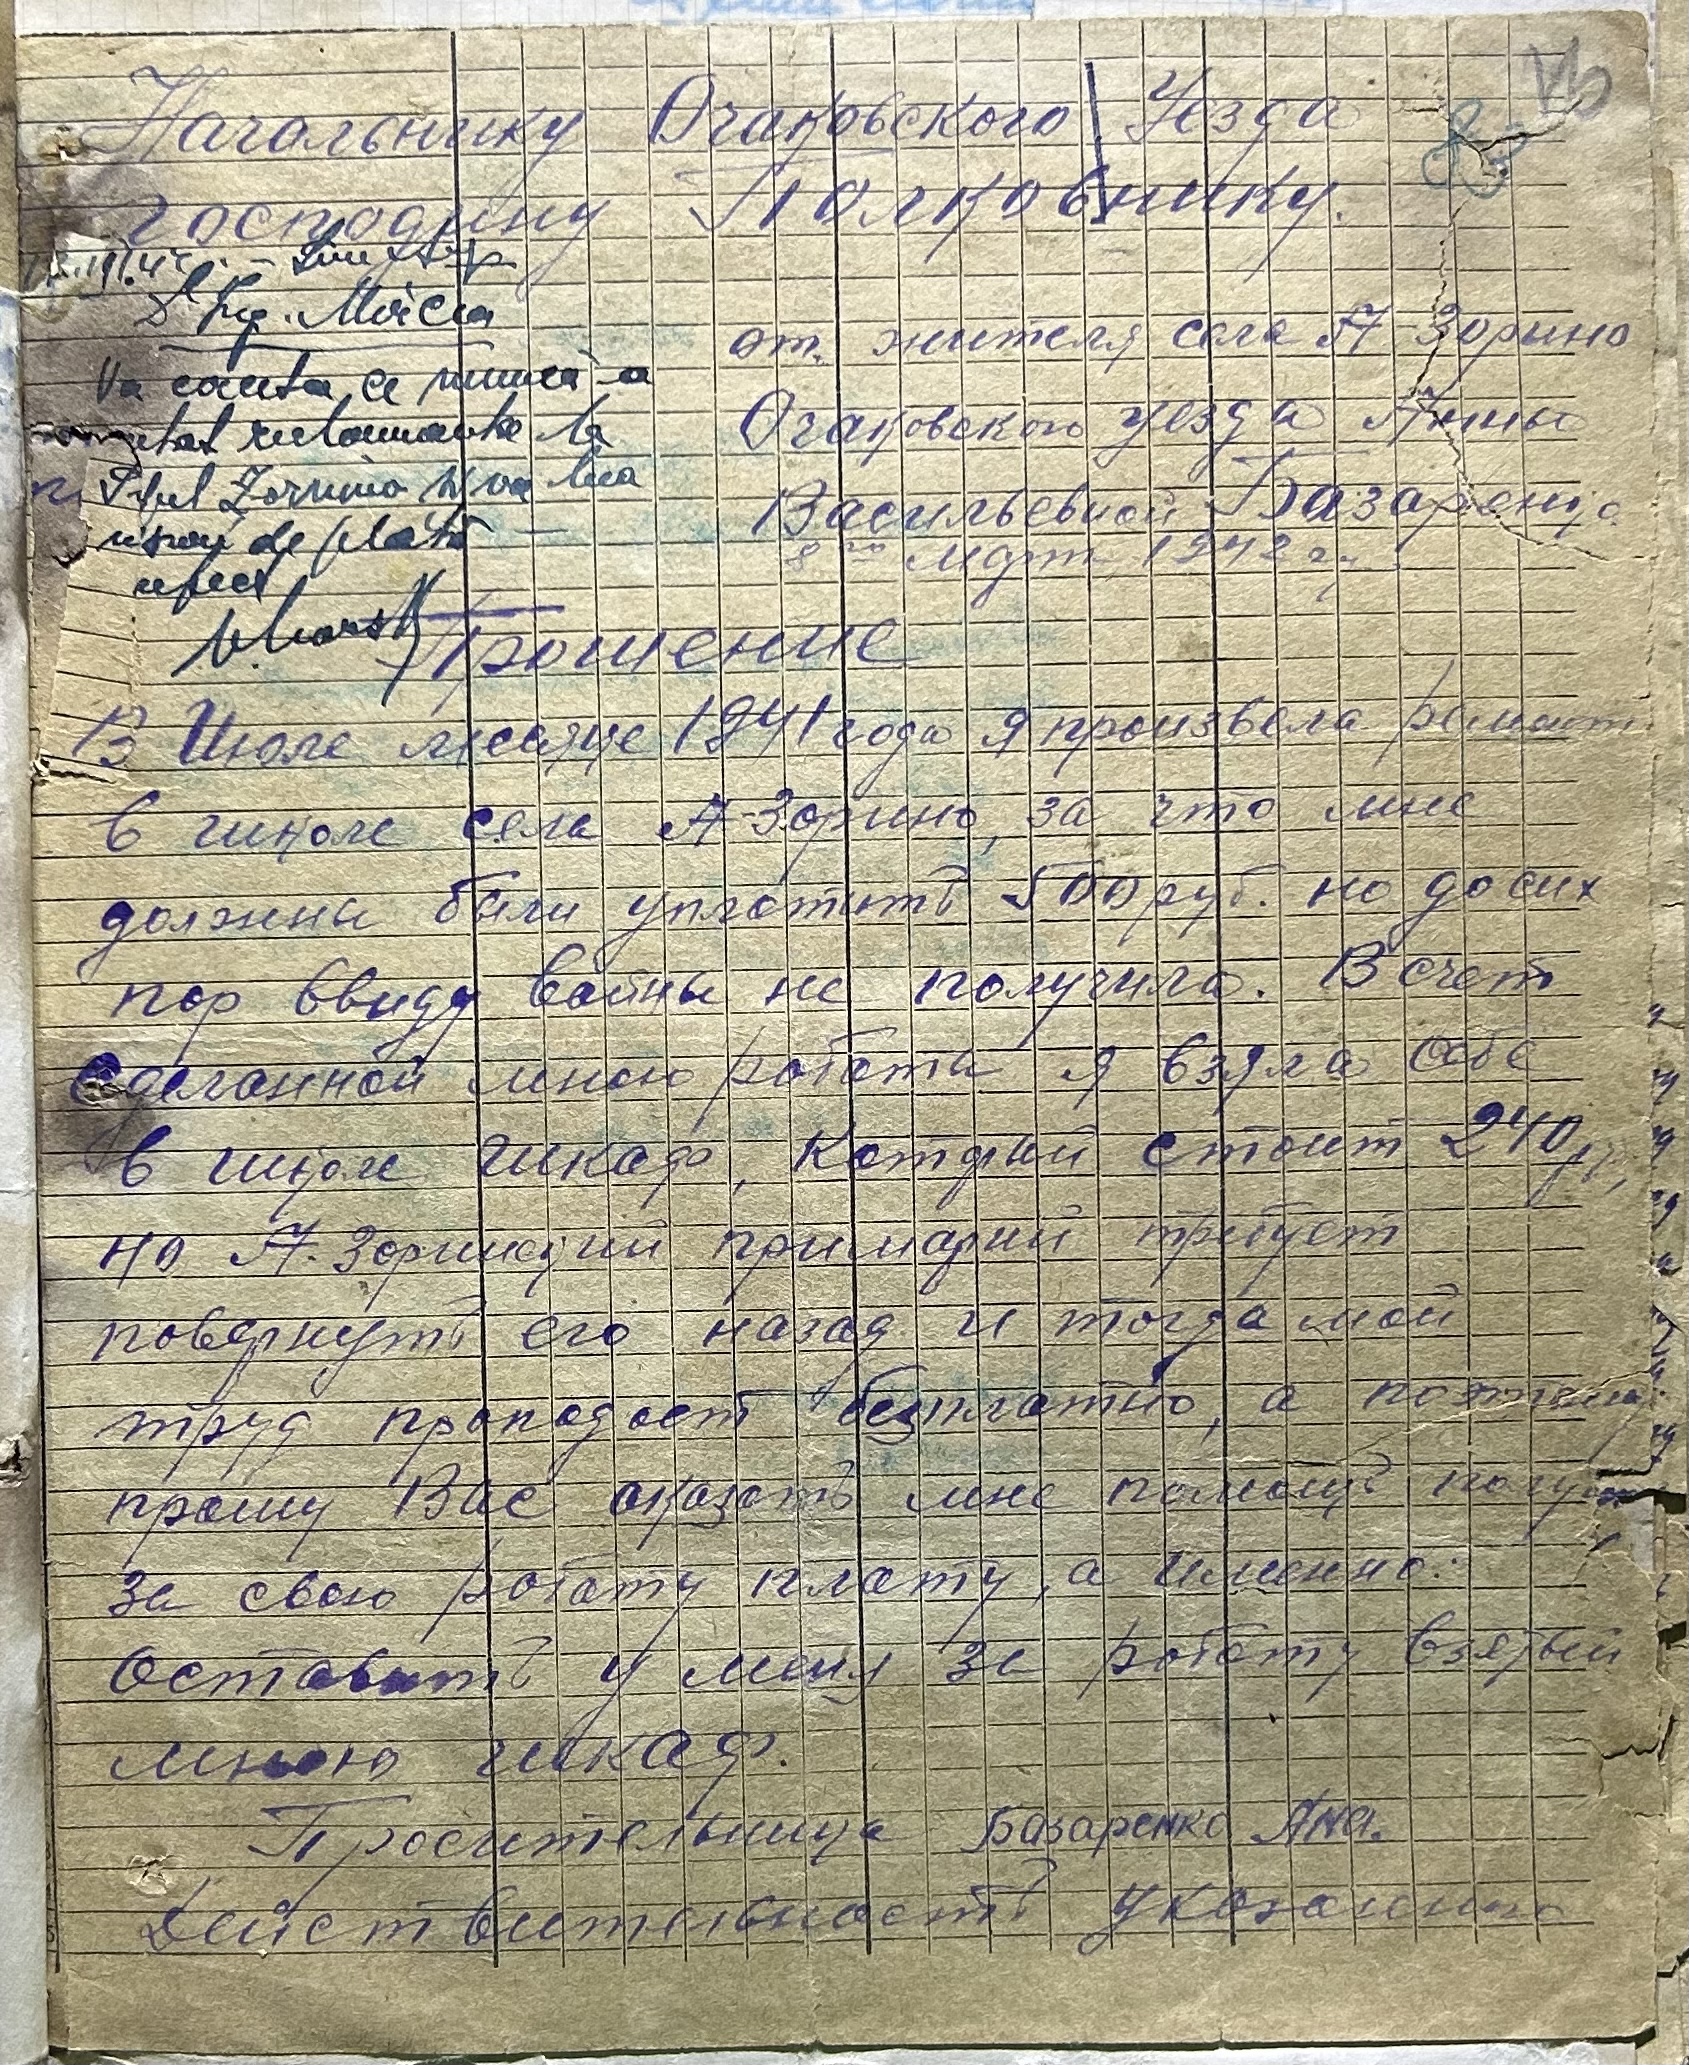 Начальнику Очаковского Уезда
господину Полковнику.
Ing. Mircea
Va cauta ce numea
la
Zorino
de plată
от жителя села А-Зорино
Очаковского уезда Анны
Васильевной Базаренко
8го март 1942 г.
Прошение
В Июле месяце 1941 года я произвела ремонт
в школе села А-Зорино, за что мне
должны были уплатить 500 руб. но до сих
пор ввиду войны не получила. В счет
сделанной мною работы я взяла себе
в школе шкаф, который стоит 240 р,
но А. Зоринский примарий требует
повернуть его назад и тогда мой
труд пропадает безплатно, а поэтому
прошу Вас оказать мне помощь
за свою работу плату, а именно:
Оставить у меня за работу взятый
мною шкаф.
Просительница Базаренко Ана.
Действительность указанно